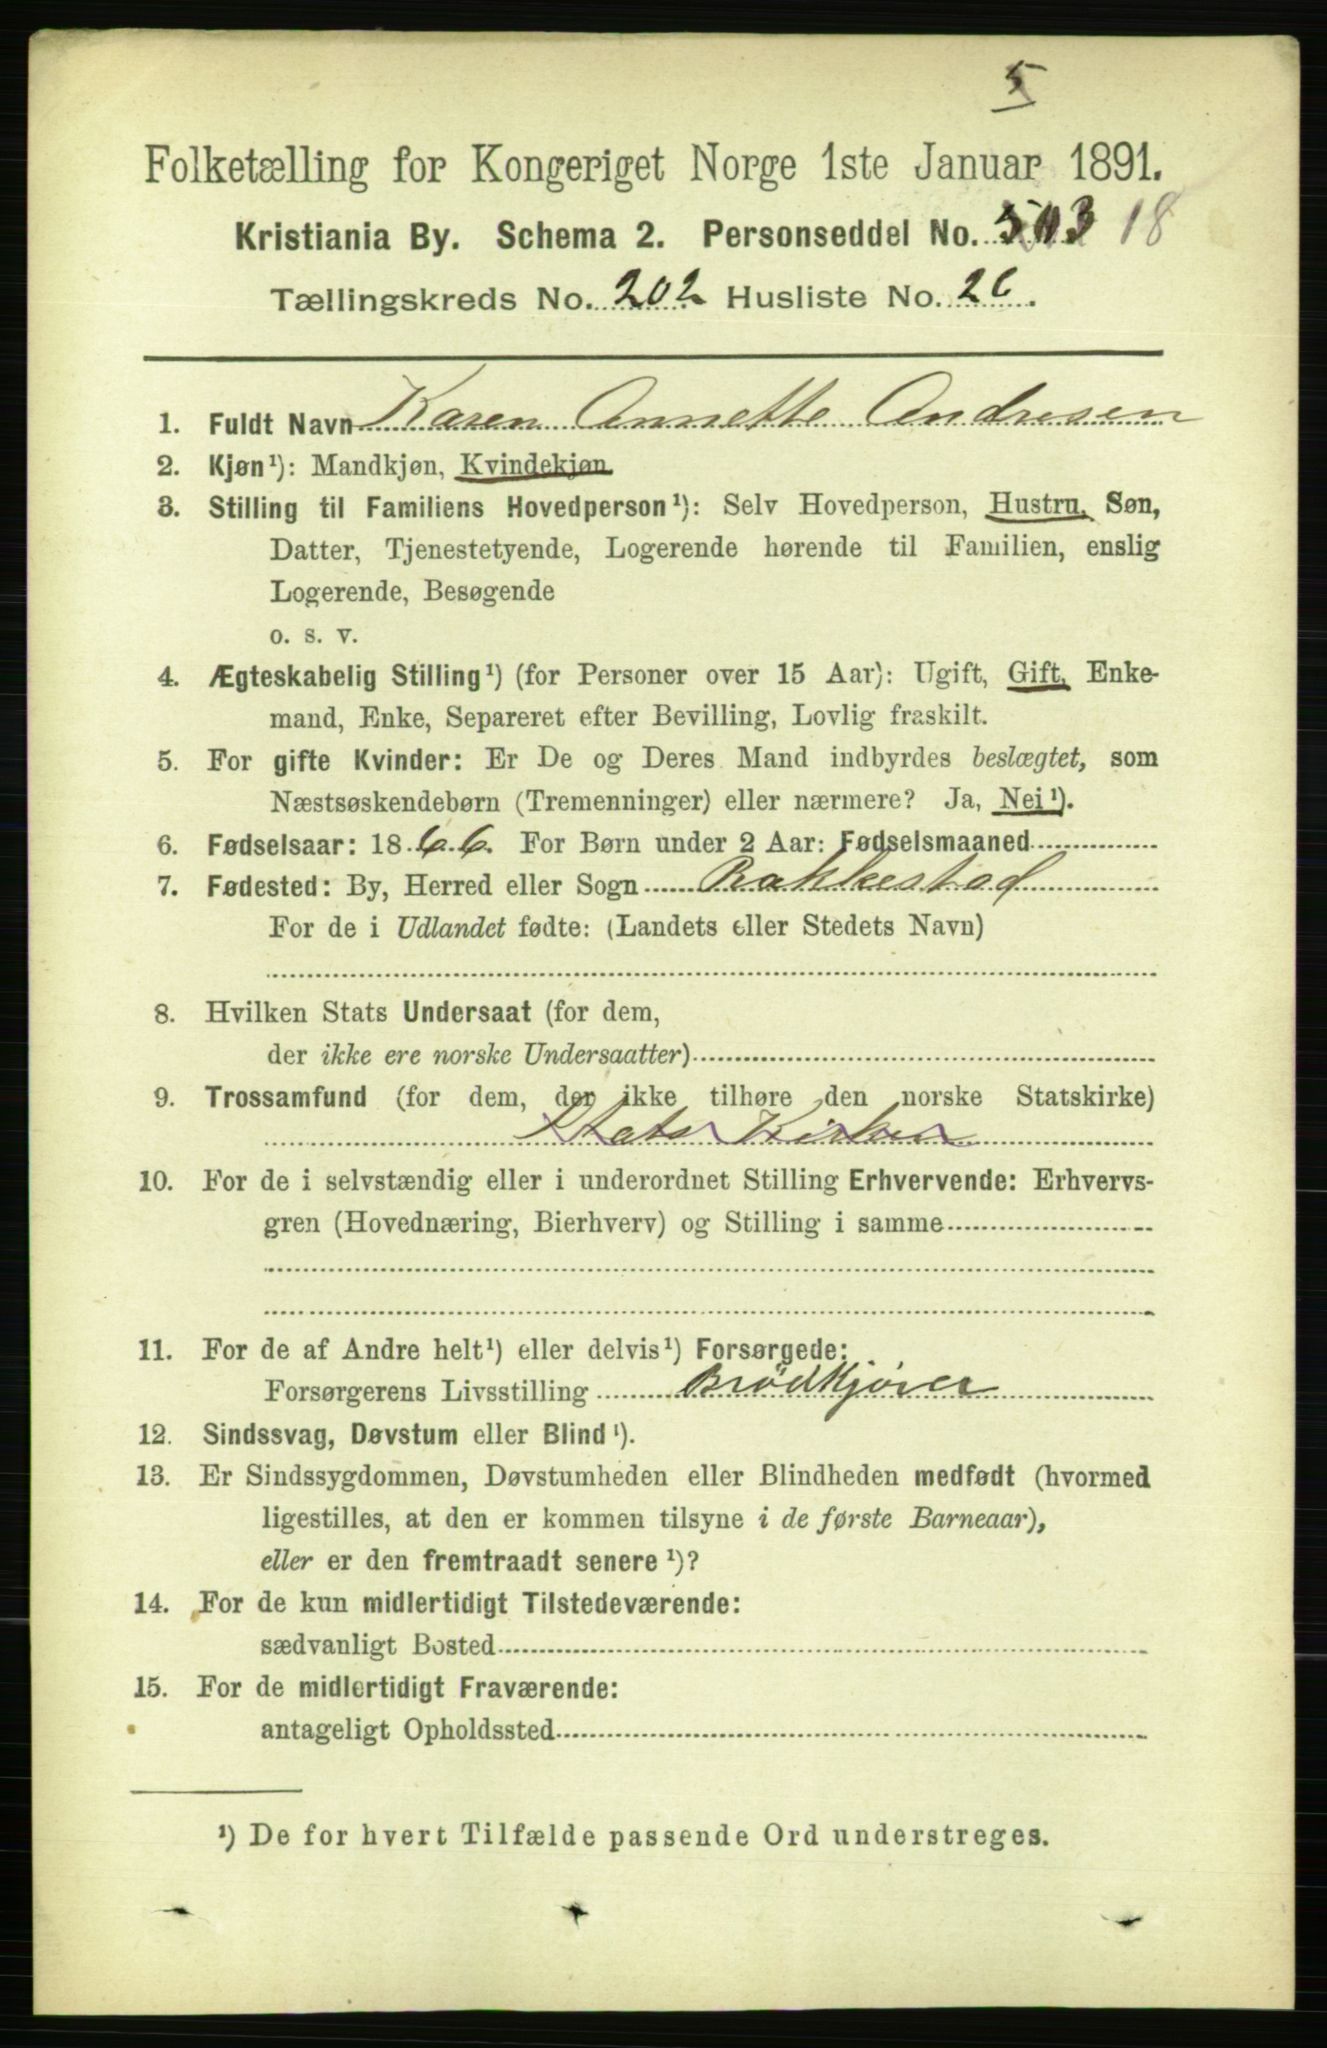 5
Folketælling for Kongeriget Norge 1ste Januar 1891.
Kristiania By. Schema 2. Personseddel No. 18
Tællingskreds No. 202 Husliste No. 26.
1. Fuldt Navn Karen Annette Andresen
2. Kjøn¹): Mandkjøn, Kvindekjøn
3. Stilling til Familiens Hovedperson¹): Selv Hovedperson, Hustru, Søn,
Datter, Tjenestetyende, Logerende hørende til Familien, enslig
Logerende, Besøgende
o. s. v.
4. Ægteskabelig Stilling¹) (for Personer over 15 Aar): Ugift, Gift, Enke-
mand, Enke, Separeret efter Bevilling, Lovlig fraskilt.
5. For gifte Kvinder: Er De og Deres Mand indbyrdes beslægtet, som
Næstsøskendebørn (Tremenninger) eller nærmere? Ja, Nei¹).
6. Fødselsaar: 1866. For Børn under 2 Aar: Fødselsmaaned
7. Fødested: By, Herred eller Sogn Rakkestad
For de i Udlandet fødte: (Landets eller Stedets Navn)
8. Hvilken Stats Undersaat (for dem,
der ikke ere norske Undersaatter)
9. Trossamfund (for dem, der ikke tilhøre den norske Statskirke)
Stats Kirken
10. For de i selvstændig eller i underordnet Stilling Erhvervende: Erhvervs-
gren (Hovednæring, Bierhverv) og Stilling i samme
11. For de af Andre helt¹) eller delvis¹) Forsørgede:
Forsørgerens Livsstilling Brödkjörer
12. Sindssvag, Døvstum eller Blind¹).
13. Er Sindssygdommen, Døvstumheden eller Blindheden medfødt (hvormed
ligestilles, at den er kommen tilsyne i de første Barneaar),
eller er den fremtraadt senere¹)?
14. For de kun midlertidigt Tilstedeværende:
sædvanligt Bosted
15. For de midlertidigt Fraværende:
antageligt Opholdssted
¹) De for hvert Tilfælde passende Ord understreges.